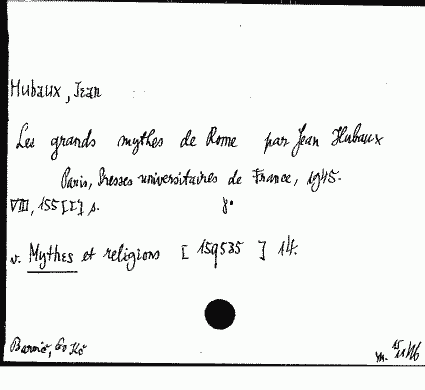 Hubaux, Jean
Les grands mythes de Rome par Jean Hubaux
Paris, Presses universitaires de France, 1945.
VIII, 155 [I] s. 8°
v. Mythes et religions [159535] 14.